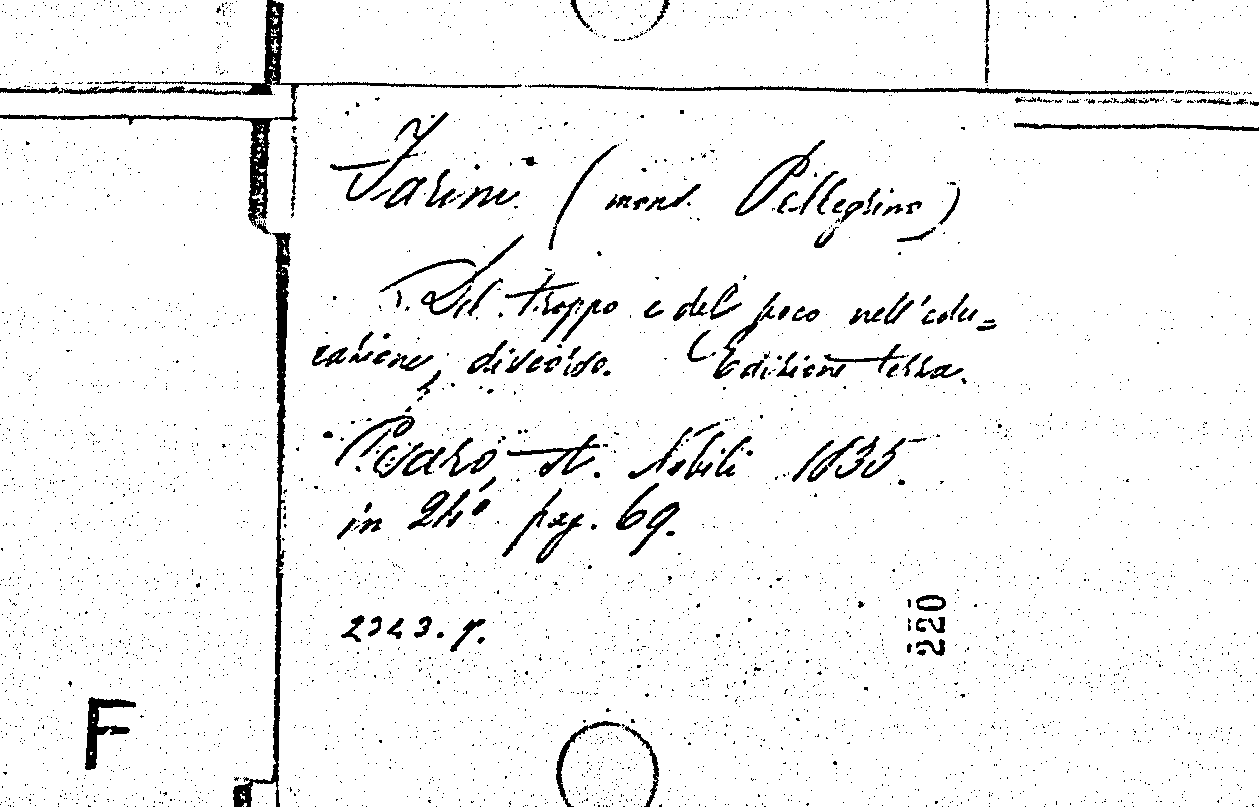 Farini (mons. Pellegrino)
Del troppo e del poco nell'edu=
cazione, discorso. Edizione terza.
Pesaro, st. Nobili 1835.
in 24° pag. 69.
2323. 7.
220
F